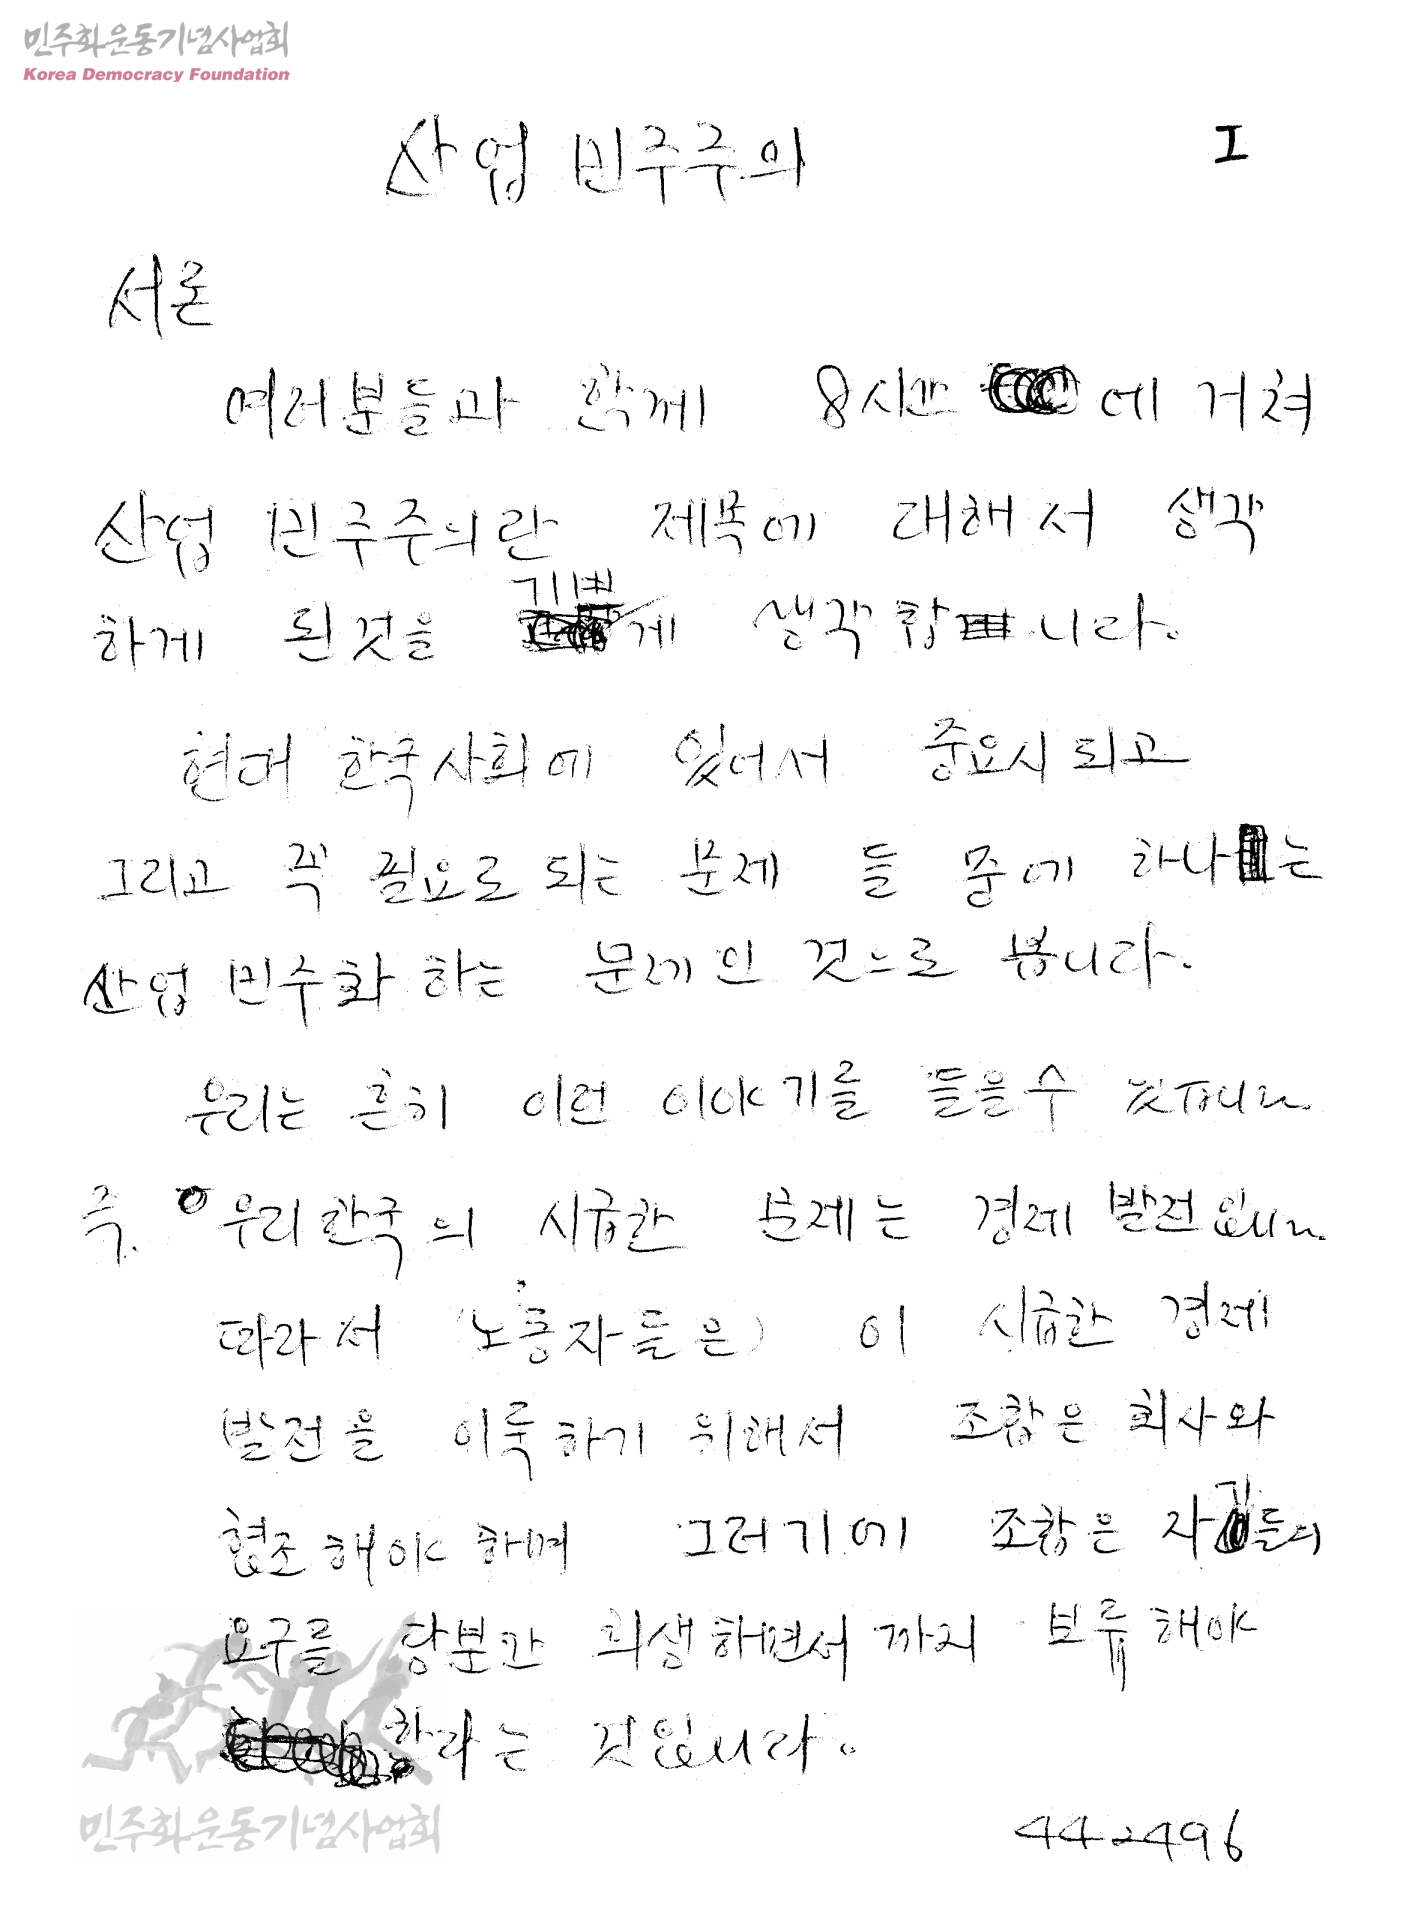 민주화운동기념사업회
Korea Democracy Foundation
산업 민주주의
I
서론
여러분들과 함께 8시간 에 거쳐
산업 민주주의란 제목에 대해서 생각
하게 된것을 기쁘게 생각합니다.
현대 한국사회에 있어서 중요시 되고
그리고 꼭 필요로 되는 문제 들 중에 하나는
산업 민주화 하는 문제인 것으로 봅니다.
우리는 흔히 이런 이야기를 들을수
즉. 우리 한국의 시급한 문제는 경제 발전입니다.
따라서 (노동자들은) 이 시급한 경제
발전을 이룩하기 위해서 조합은 회사와
협조해야 하며 그러기에 조합은 자기들의
요구를 당분간 희생하면서 까지 보류해야
한다는 것입니다.
민주화운동기념사업회
442496